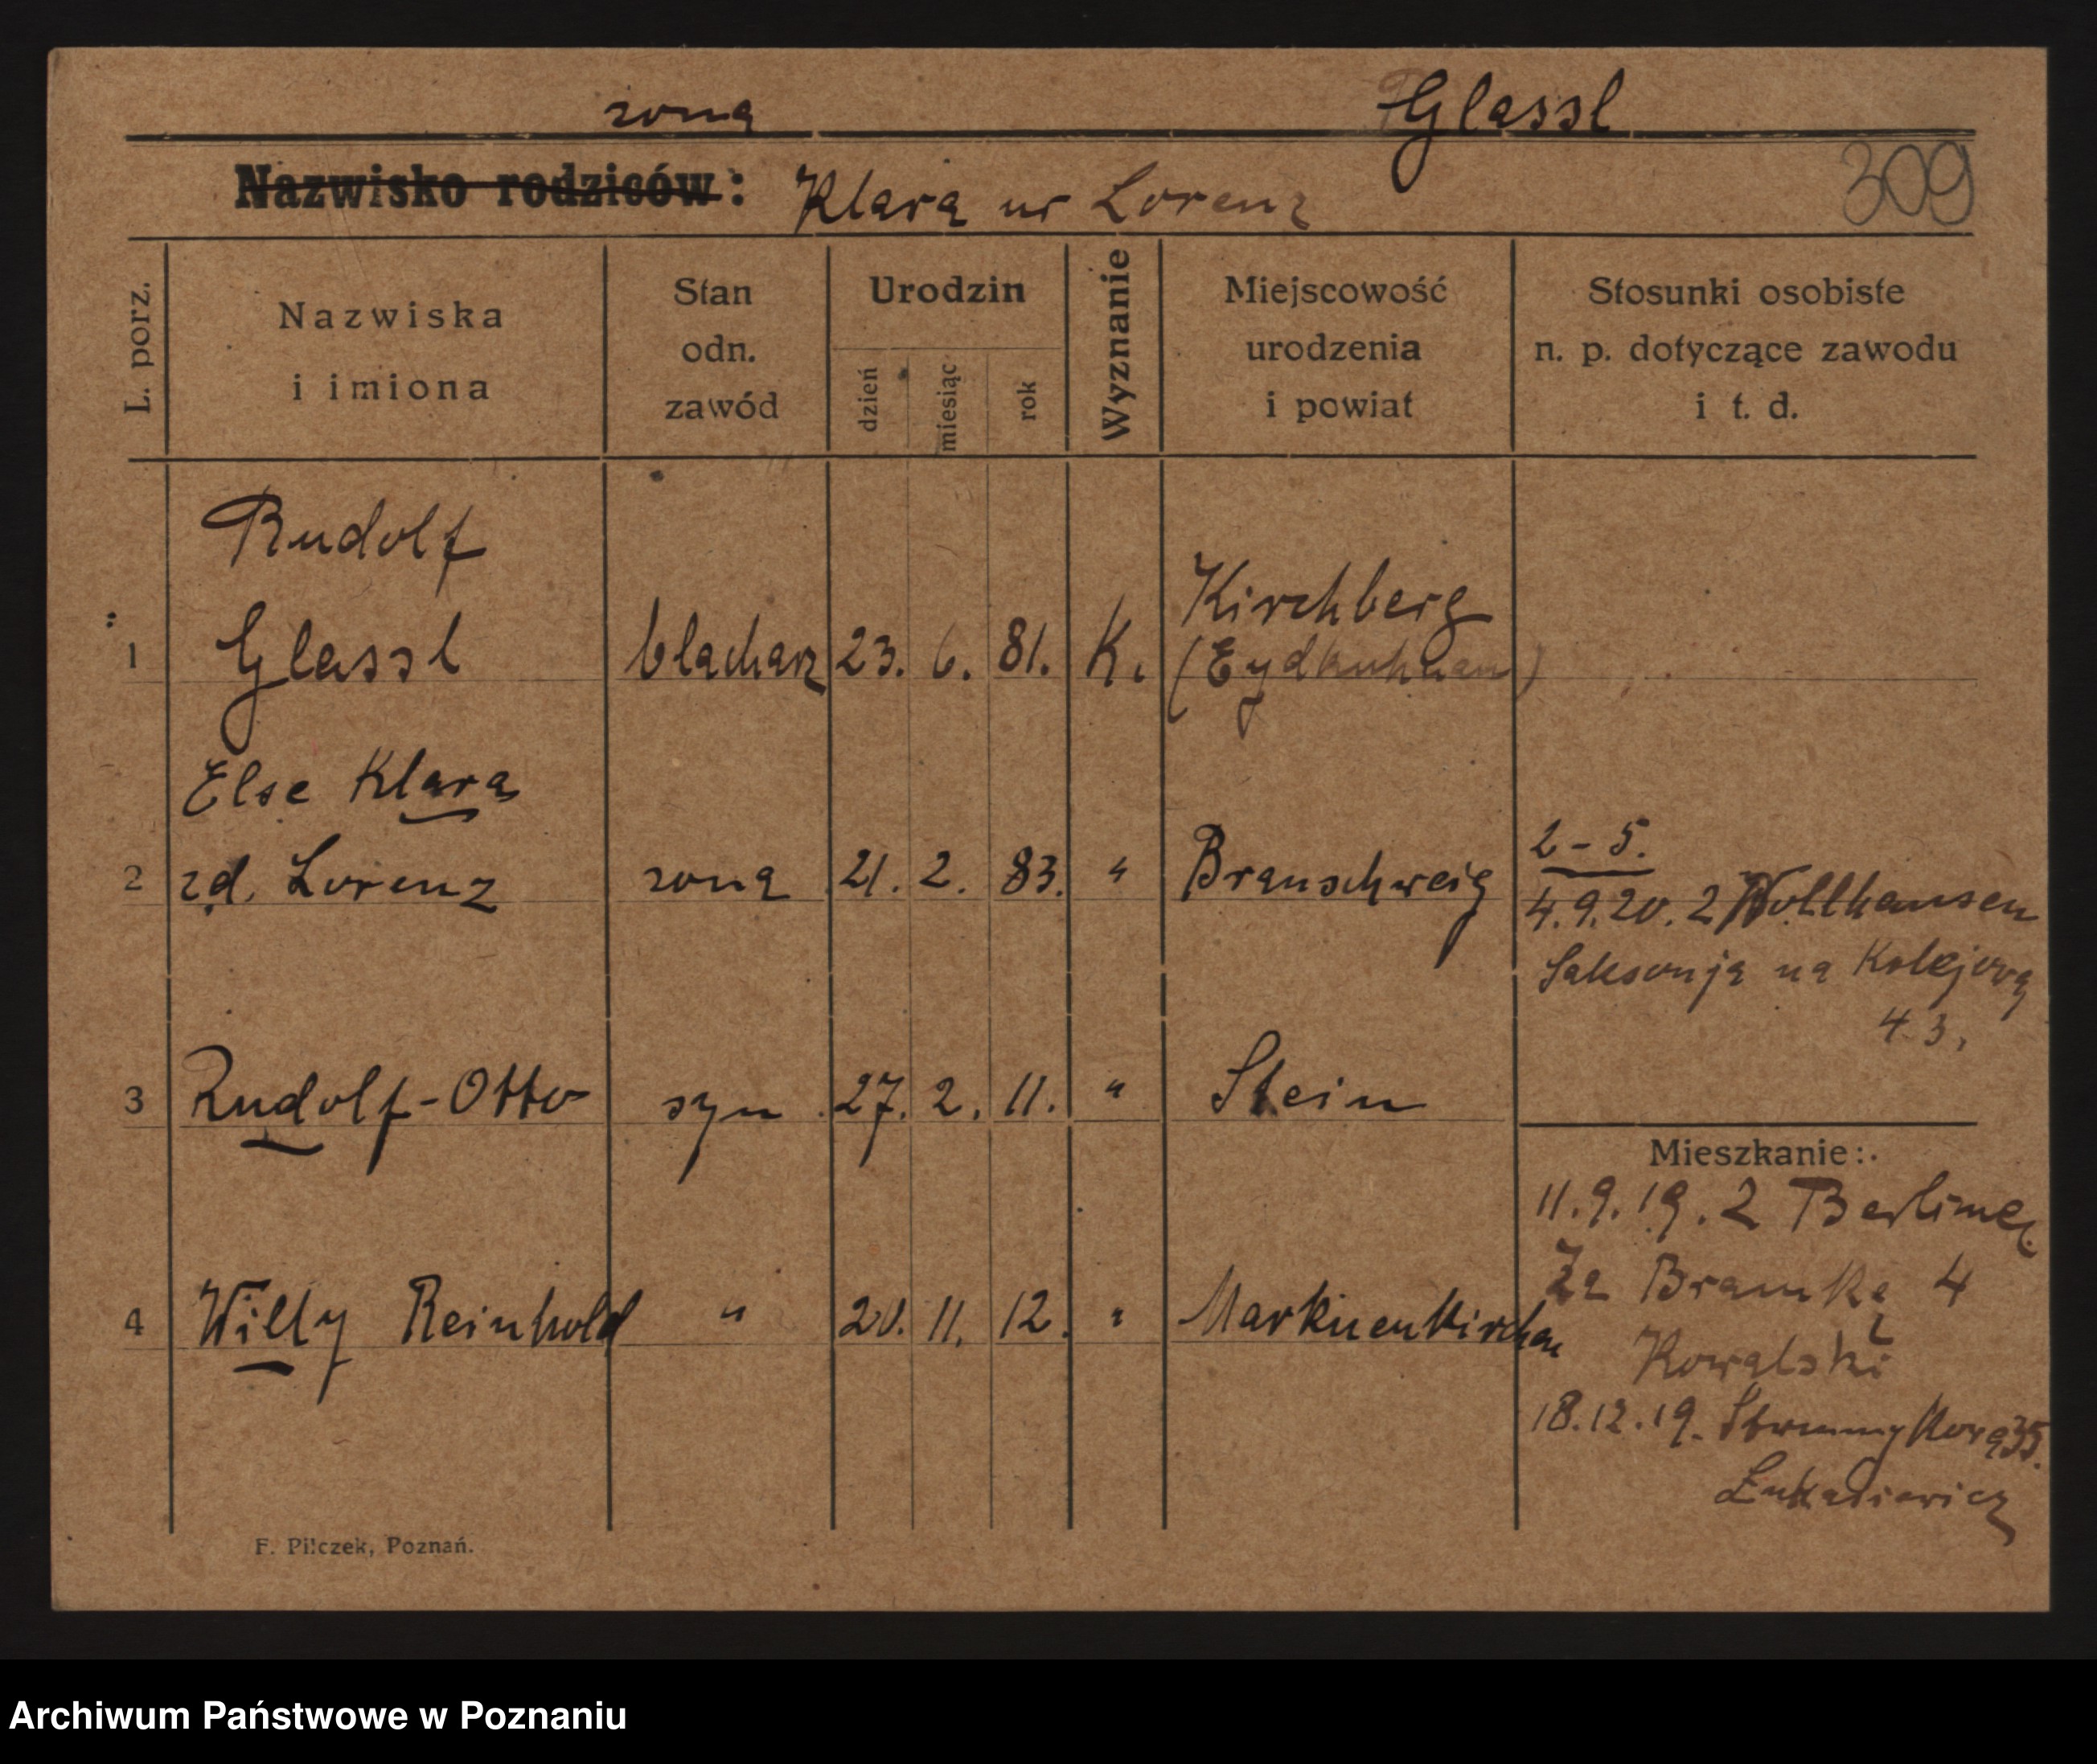 żona Glassl
Nazwisko rodziców: Klara ur Lorenz 309
L. porz.
Nazwiska
i imiona
Stan
odn.
zawód
Urodzin
dzień
miesiąc
rok
Wyznanie
Miejscowość
urodzenia
i powiat
Stosunki osobiste
n. p. dotyczące zawodu
i t. d.
Rudolf
1 Glassl blacharz 23. 6. 81. K. Kirchberg
Else Klara
2 zd. Lorenz żona 21. 2. 83. " Branschweig
2-5.
4.9.20. z Wollhausen
Saksonja na Kolejową
43.
3 Rudolf-Otto syn 27. 2. 11. " Stein
4 Willy Reinhold " 20. 11. 12. " Markneukirchen
Mieszkanie:
11.9.19. z
Za Bramką 4
Kowalski
18.12.19. Strumykowa 35.
Łukasiewicz
F. Pilczek, Poznań.
Archiwum Państwowe w Poznaniu